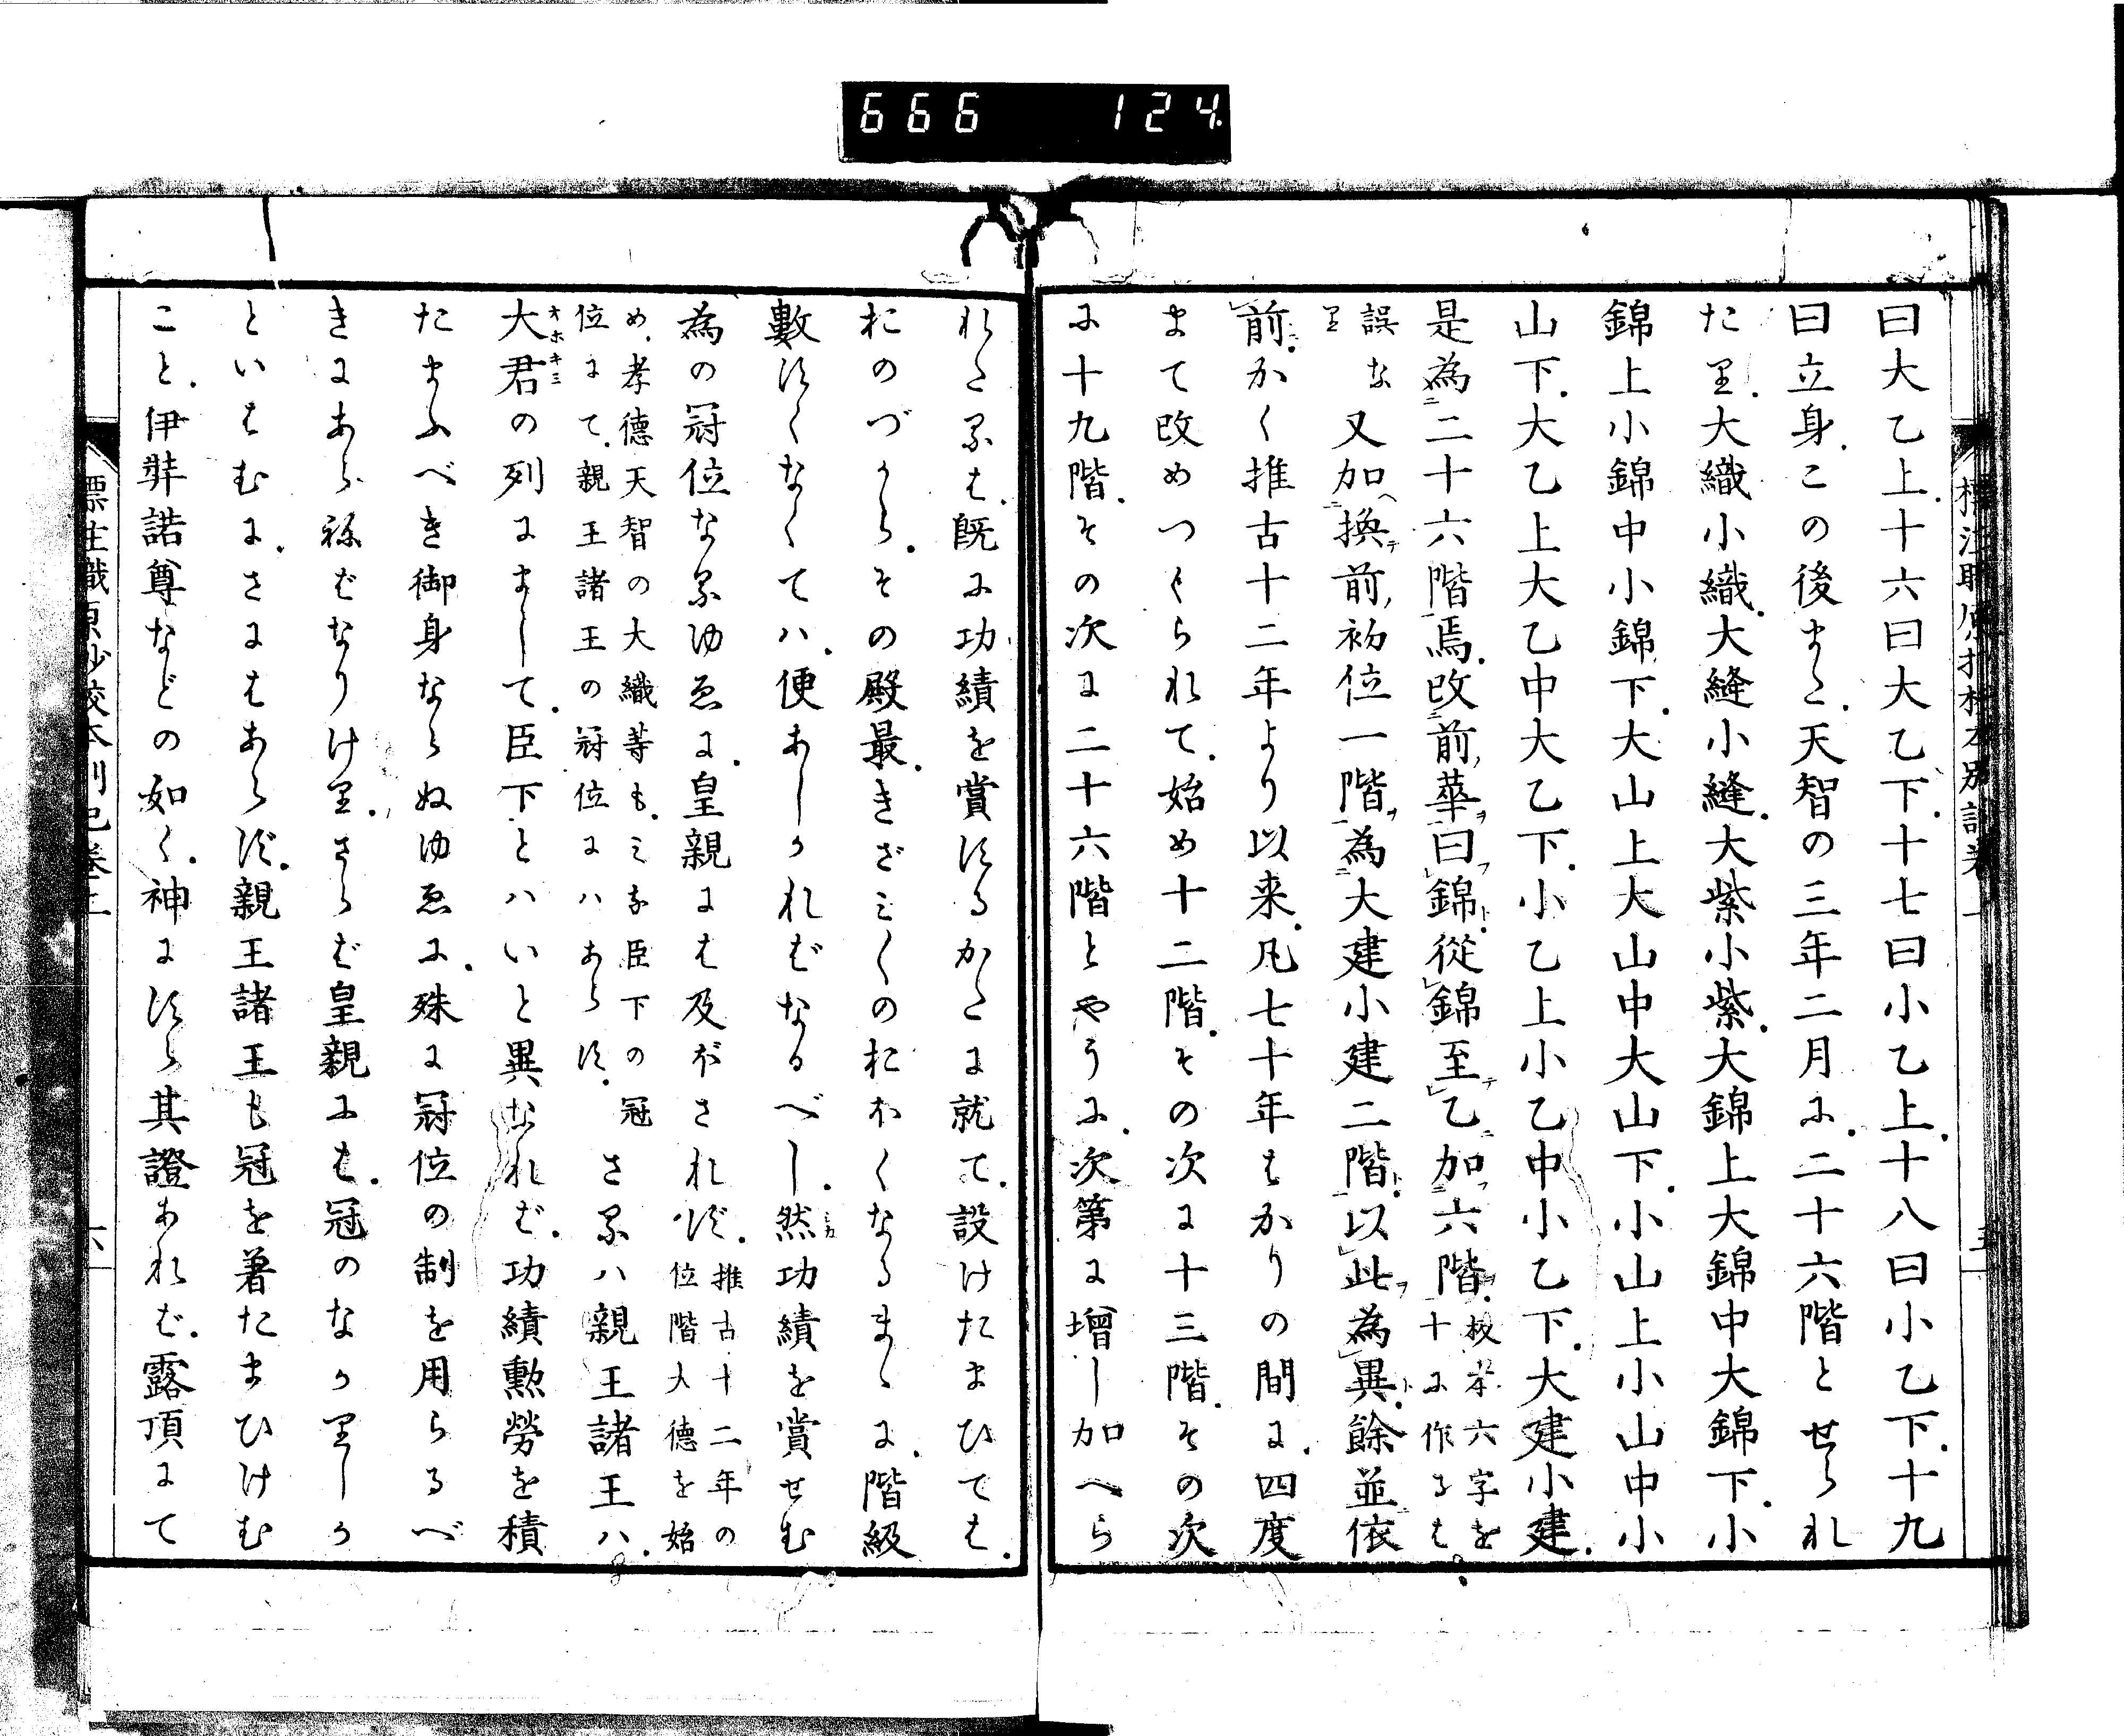 666 124
曰大乙上.十六曰大乙下.十七曰小乙上.十八曰小乙下.十九
曰立身.この後また.天智の三年二月に.二十六階とせられ
たり.大織小織.大縫小縫.大紫小紫.大錦上大錦中大錦下.小
錦上小錦中小錦下.大山上大山中大山下.小山上小山中小
山下.大乙上大乙中大乙下.小乙上小乙中小乙下.大建小建.
是為二十六階焉.改前華曰錦.從錦至乙加六階.板本六字を
十に作るは
誤な
り
又加換前初位一階為大建小建二階.以此為異.餘並依
前.かく推古十二年より以来.凡七十年はかりの間に.四度
まて改めつくられて.始め十二階.その次に十三階.その次
に十九階.その次に二十六階とやうに.次第に増し加へら
れたるは.既に功績を賞するかたに就て.設けたまひては.
おのづから.その殿最.きざみ〱のおほくなるまゝに.階級
數すくなくてハ.便あしかればなるべし.然功績を賞せむ
為の冠位なるゆゑに.皇親には及ぼされず.推古十二年の
位階大德を始
め.孝德天智の大織等も.みな臣下の冠
位にて.親王諸王の冠位にハあらす.
さるハ親王諸王ハ.
大君の列にまして.臣下とハいと異なれば.功績勲勞を積
オホキミ
たまふべき御身ならぬゆゑに.殊に冠位の制を用らるべ
きにあらねばなりけり.さらば皇親には.冠のなかりしか
といはむに.さにはあらず.親王諸王も冠を著たまひけむ
こと.伊弉諾尊などの如く.神にすら其證あれば.露頂にて
六
五